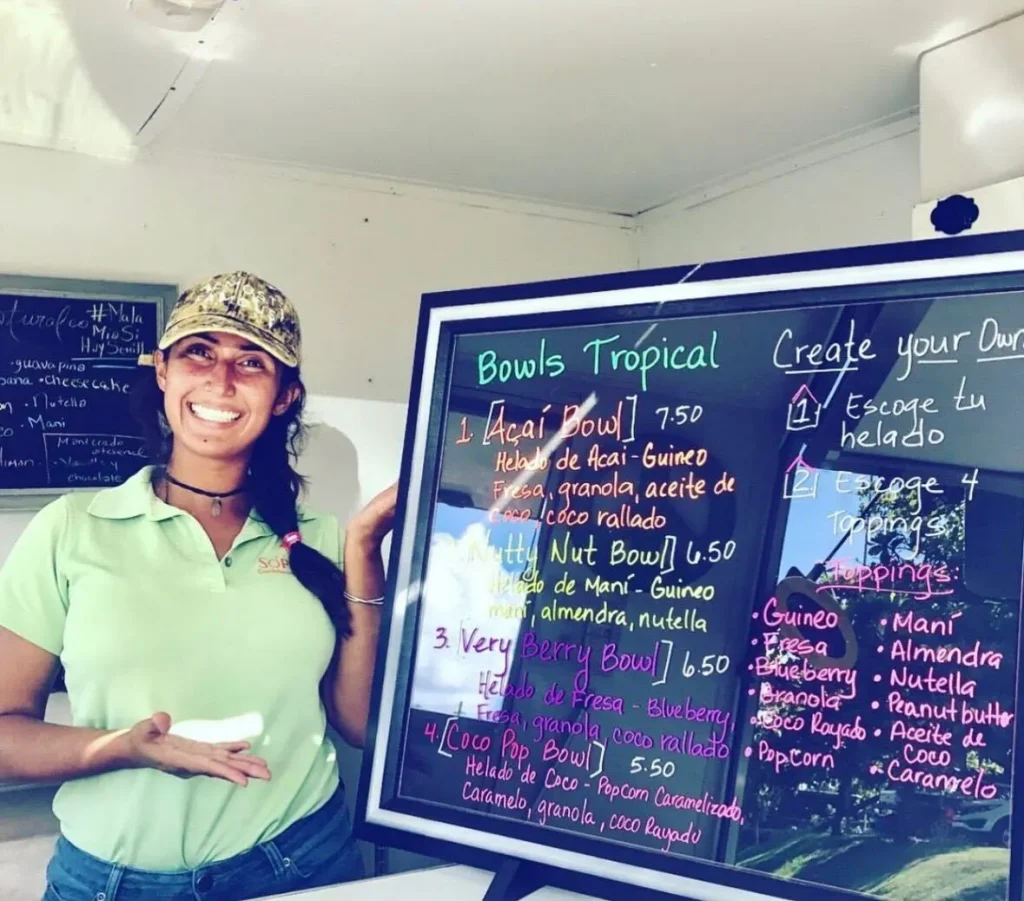 #Mala
Mía Sí
Hoy Sevill
guavapiña
•cheesecake
•Nutella
•Maní
Mantecado
chocolate
Bowls Tropical
1. [Açaí Bowl] 7.50
Helado de Acai-Guineo
Fresa, granola, aceite de
coco, coco rallado
Nutty Nut Bowl] 6.50
Helado de Maní - Guineo
maní, almendra, nutella
3. [Very Berry Bowl] 6.50
Helado de Fresa - Blueberry,
Fresa, granola, coco rallado
4. [Coco Pop Bowl] 5.50
Helado de Coco - Popcorn Caramelizado,
Caramelo, granola, coco Rayado
Create your Own
1 Escoge tu
helado
2 Escoge 4
Toppings
Toppings:
•Guineo
•Fresa
•Blueberry
•Granola
•Coco Rayado
•PopCorn
•Maní
•Almendra
•Nutella
•Peanut butter
•Aceite de
Coco
•Caramelo